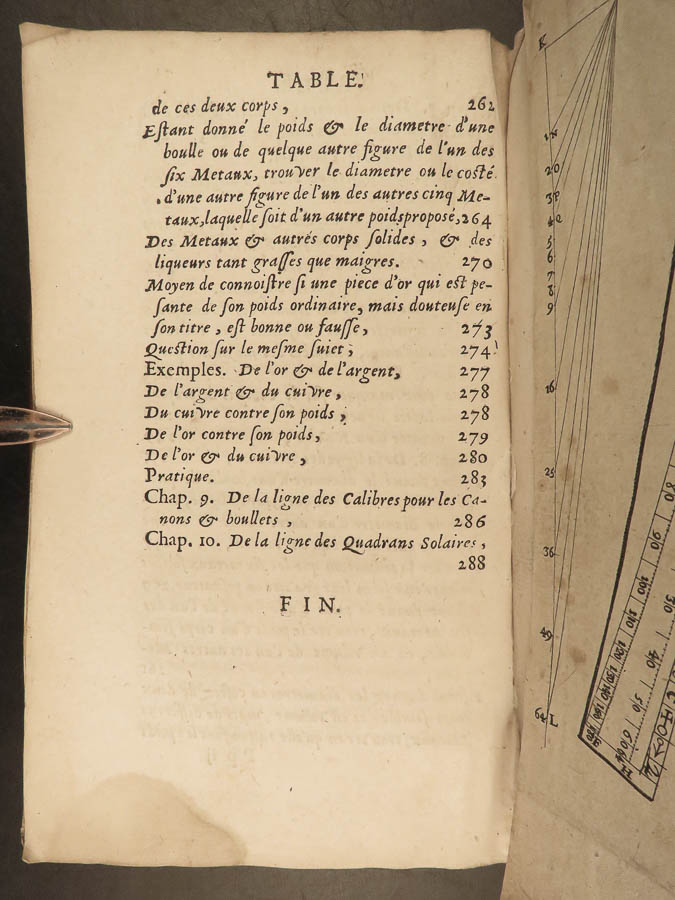 TABLE.
de ces deux corps, 262
Estant donné le poids & le diametre d'une
boulle ou de quelque autre figure de l'un des
six Metaux, trouver le diametre ou le costé
d'une autre figure de l'un des autres cinq Me-
taux, laquelle soit d'un autre poids proposé, 264
Des Metaux & autrés corps solides, & des
liqueurs tant grasses que maigres. 270
Moyen de connoistre si une piece d'or qui est pe-
sante de son poids ordinaire, mais douteuse en
son titre, est bonne ou fausse, 273
Question sur le mesme suiet, 274
Exemples. De l'or & de l'argent, 277
De l'argent & du cuivre, 278
Du cuivre contre son poids, 278
De l'or contre son poids, 279
De l'or & du cuivre, 280
Pratique. 283
Chap. 9. De la ligne des Calibres pour les Ca-
nons & boullets, 286
Chap. 10. De la ligne des Quadrans Solaires,
288
FIN.
K
16
25
36
49
64 L